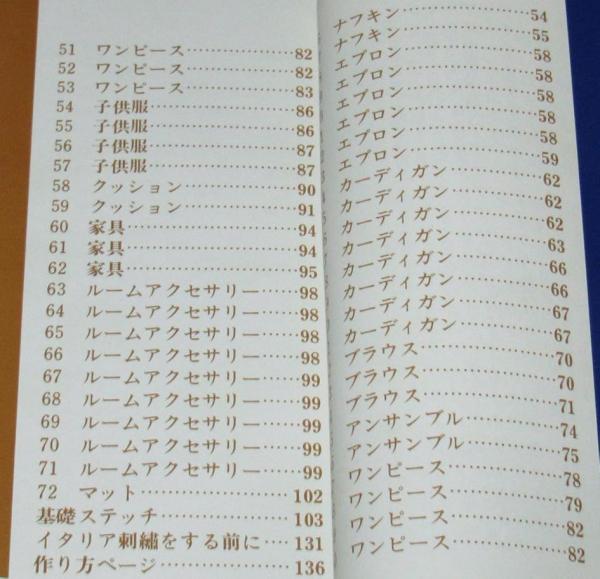 51 ワンピース……………82
52 ワンピース……………82
53 ワンピース……………83
54 子供服…………………86
55 子供服…………………86
56 子供服…………………87
57 子供服…………………87
58 クッション……………90
59 クッション……………91
60 家具……………………94
61 家具……………………94
62 家具……………………95
63 ルームアクセサリー……98
64 ルームアクセサリー……98
65 ルームアクセサリー……98
66 ルームアクセサリー……98
67 ルームアクセサリー……99
68 ルームアクセサリー……99
69 ルームアクセサリー……99
70 ルームアクセサリー……99
71 ルームアクセサリー……99
72 マット…………………102
基礎ステッチ………………103
イタリア刺繡をする前に…131
作り方ページ………………136
ナフキン…………………54
ナフキン…………………55
エプロン…………………58
エプロン…………………58
エプロン…………………58
エプロン…………………58
エプロン…………………59
カーディガン……………62
カーディガン……………62
カーディガン……………62
カーディガン……………63
カーディガン……………66
カーディガン……………66
カーディガン……………67
カーディガン……………67
ブラウス…………………70
ブラウス…………………70
ブラウス…………………71
アンサンブル……………74
アンサンブル……………75
ワンピース………………78
ワンピース………………79
ワンピース………………82
ワンピース………………82